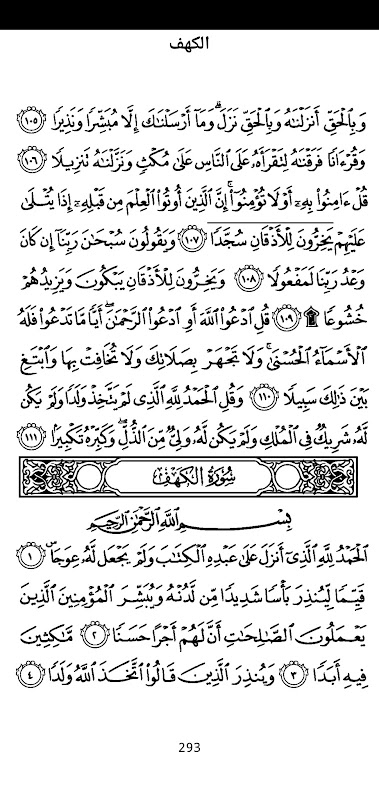 الكهف
وَبِٱلۡحَقِّ أَنزَلۡنَٰهُ وَبِٱلۡحَقِّ نَزَلَۗ وَمَآ أَرۡسَلۡنَٰكَ إِلَّا مُبَشِّرٗا وَنَذِيرٗا ١٠٥
وَقُرۡءَانٗا فَرَقۡنَٰهُ لِتَقۡرَأَهُۥ عَلَى ٱلنَّاسِ عَلَىٰ مُكۡثٖ وَنَزَّلۡنَٰهُ تَنزِيلٗا ١٠٦
قُلۡ ءَامِنُواْ بِهِۦٓ أَوۡ لَا تُؤۡمِنُوٓاْۚ إِنَّ ٱلَّذِينَ أُوتُواْ ٱلۡعِلۡمَ مِن قَبۡلِهِۦٓ إِذَا يُتۡلَىٰ
عَلَيۡهِمۡ يَخِرُّونَۤ لِلۡأَذۡقَانِۤ سُجَّدٗاۤ ١٠٧ وَيَقُولُونَ سُبۡحَٰنَ رَبِّنَآ إِن كَانَ
وَعۡدُ رَبِّنَا لَمَفۡعُولٗا ١٠٨ وَيَخِرُّونَ لِلۡأَذۡقَانِ يَبۡكُونَ وَيَزِيدُهُمۡ
خُشُوعٗا ۩ ١٠٩ قُلِ ٱدۡعُواْ ٱللَّهَ أَوِ ٱدۡعُواْ ٱلرَّحۡمَٰنَۖ أَيّٗا مَّا تَدۡعُواْ فَلَهُ
ٱلۡأَسۡمَآءُ ٱلۡحُسۡنَىٰۚ وَلَا تَجۡهَرۡ بِصَلَاتِكَ وَلَا تُخَافِتۡ بِهَا وَٱبۡتَغِ
بَيۡنَ ذَٰلِكَ سَبِيلٗا ١١٠ وَقُلِ ٱلۡحَمۡدُ لِلَّهِ ٱلَّذِي لَمۡ يَتَّخِذۡ وَلَدٗا وَلَمۡ يَكُن
لَّهُۥ شَرِيكٞ فِي ٱلۡمُلۡكِ وَلَمۡ يَكُن لَّهُۥ وَلِيّٞ مِّنَ ٱلذُّلِّۖ وَكَبِّرۡهُ تَكۡبِيرَۢا ١١١
سُورَةُ الكَهۡفِ
بِسۡمِ ٱللَّهِ ٱلرَّحۡمَٰنِ ٱلرَّحِيمِ
ٱلۡحَمۡدُ لِلَّهِ ٱلَّذِيٓ أَنزَلَ عَلَىٰ عَبۡدِهِ ٱلۡكِتَٰبَ وَلَمۡ يَجۡعَل لَّهُۥ عِوَجَاۜ ١
قَيِّمٗا لِّيُنذِرَ بَأۡسٗا شَدِيدٗا مِّن لَّدُنۡهُ وَيُبَشِّرَ ٱلۡمُؤۡمِنِينَ ٱلَّذِينَ
يَعۡمَلُونَ ٱلصَّٰلِحَٰتِ أَنَّ لَهُمۡ أَجۡرًا حَسَنٗا ٢ مَّٰكِثِينَ
فِيهِ أَبَدٗا ٣ وَيُنذِرَ ٱلَّذِينَ قَالُواْ ٱتَّخَذَ ٱللَّهُ وَلَدٗا ٤
293